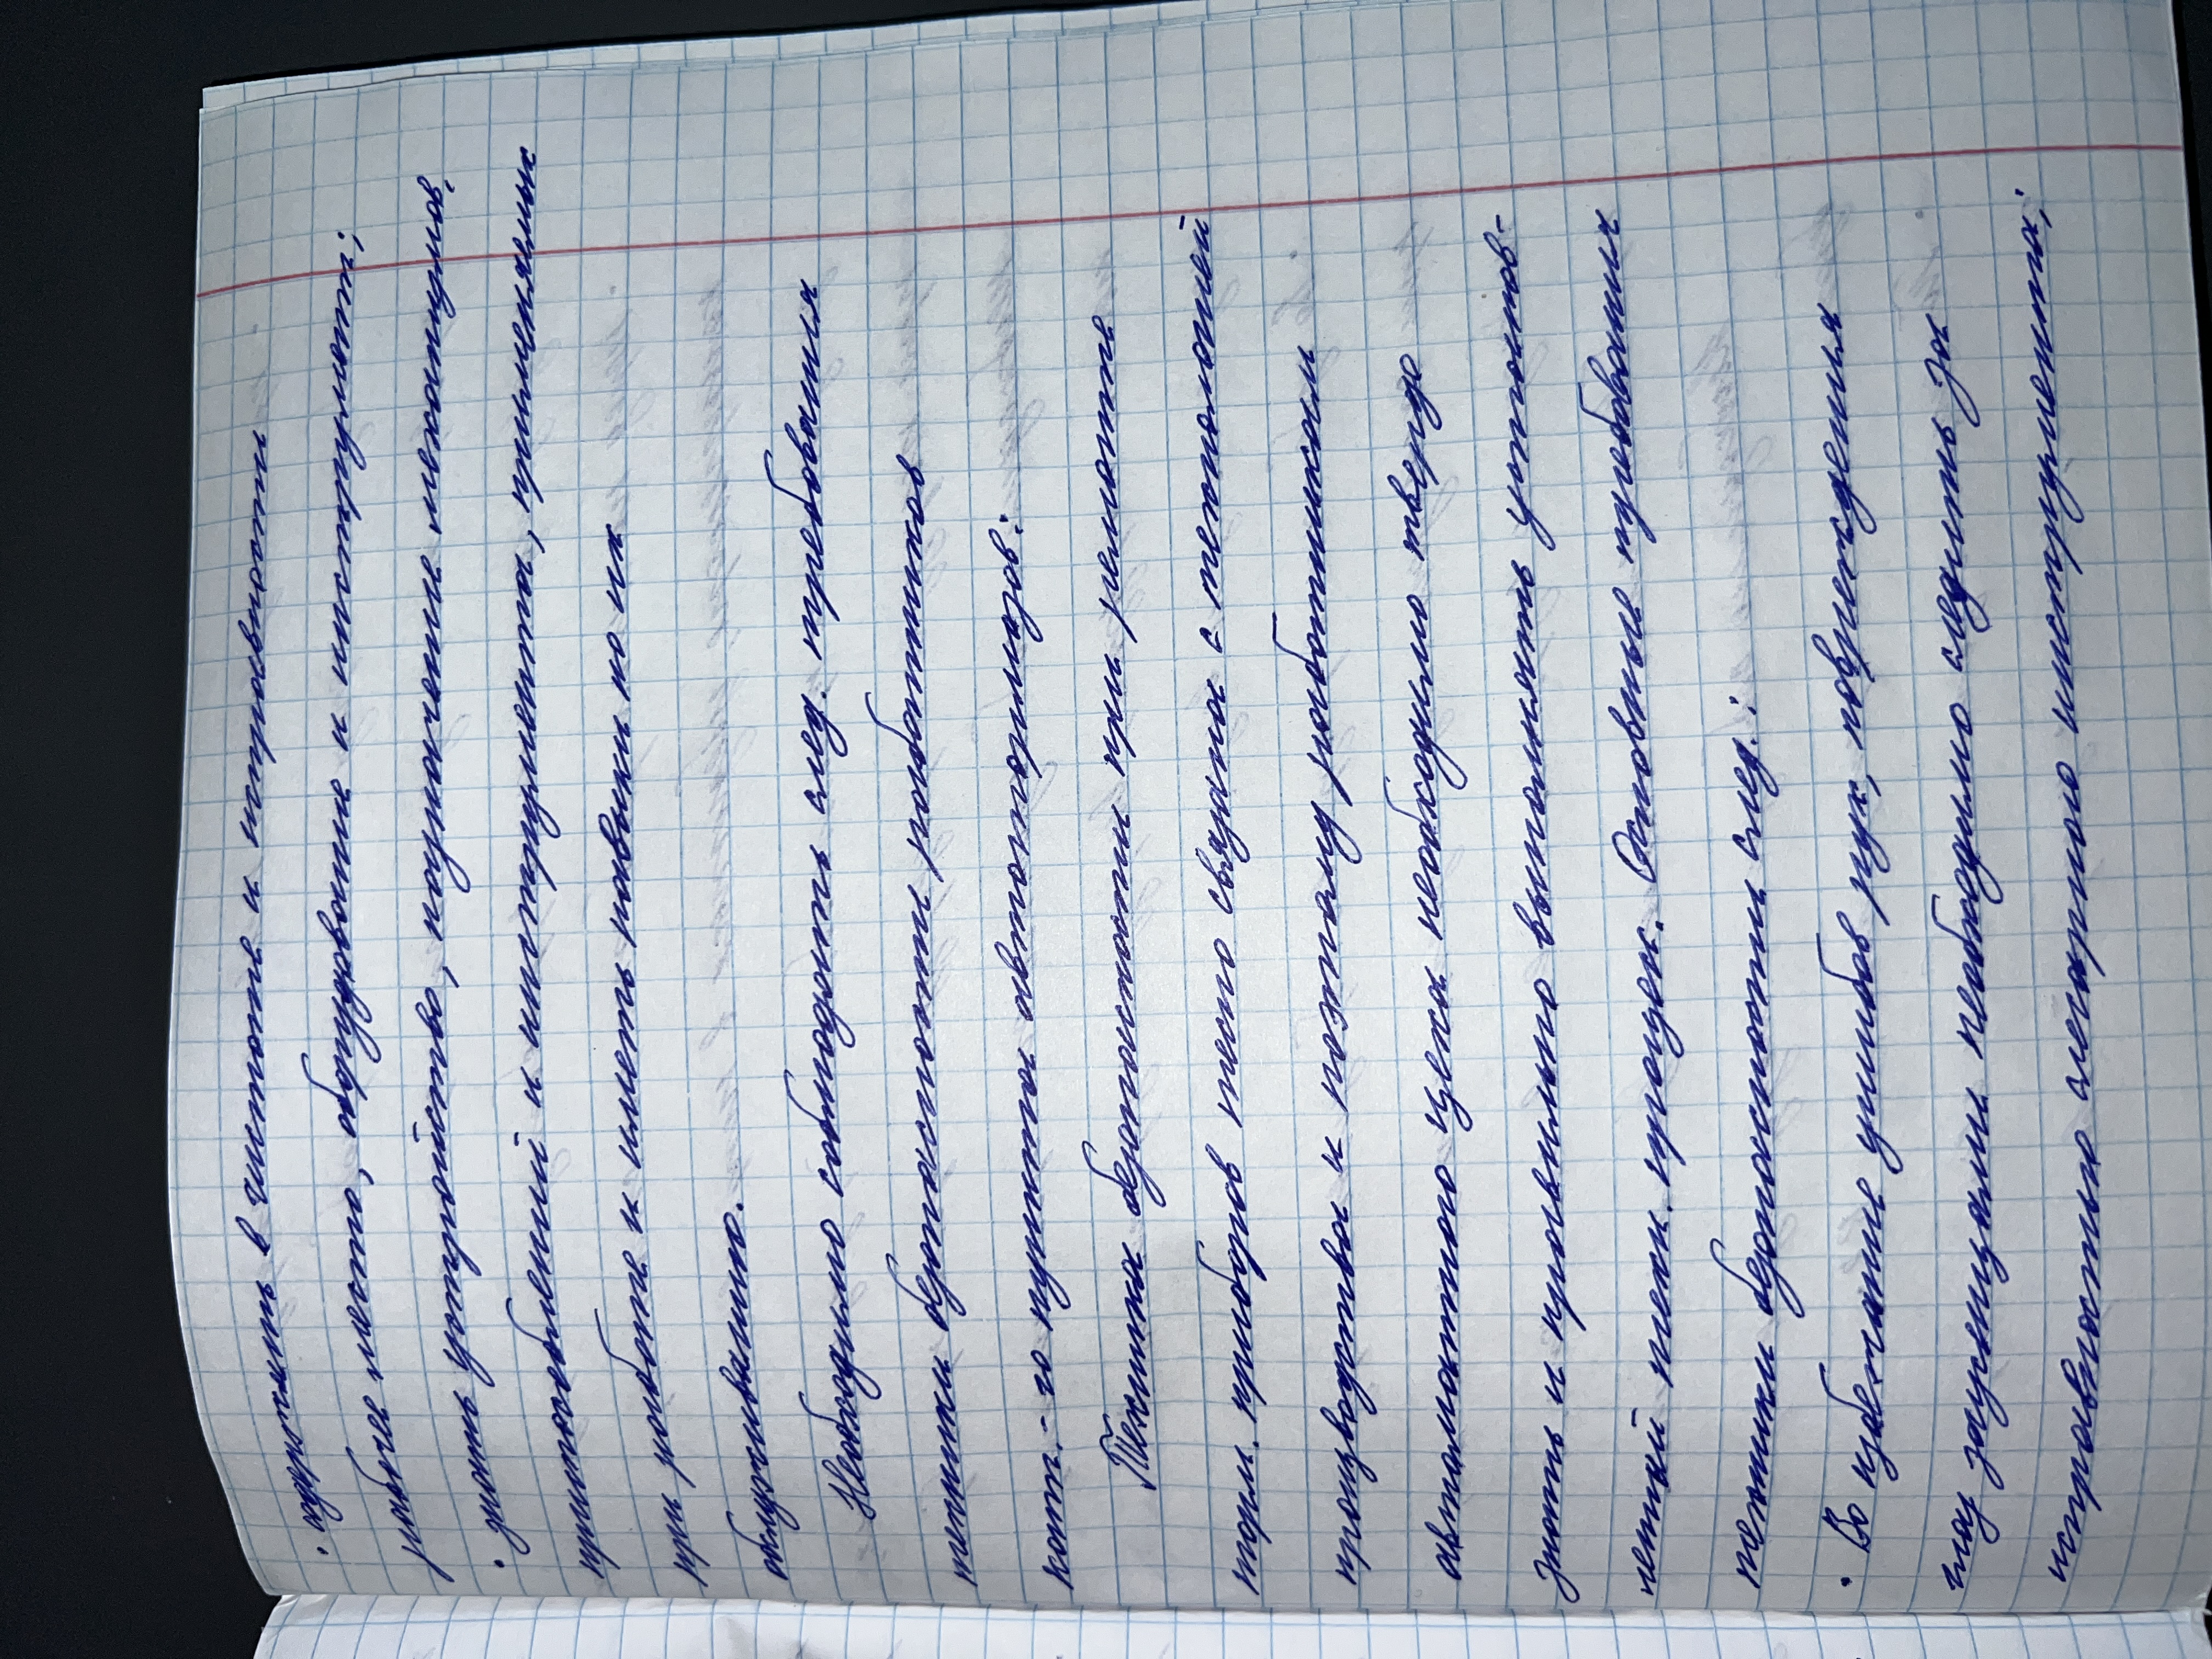 • содержать в чистоте и исправности
рабочее место, оборудование и инструмент;
• знать устройство, назначение механизмов,
приспособлений и инструмента, применяемых
при работе и иметь навыки по их
обслуживанию.
Необходимо соблюдать след. требования
техники безопасности работников
конт.-го пункта автотормозов:
Техника безопасности при ремонте
торм. приборов тесно связана с технологией
производства и поэтому работникам
автоматного цеха необходимо твердо
знать и правильно выполнять установ-
ленный техн. процесс. Основные требования
техники безопасности след.:
• Во избежание ушибов рук, повреждения
глаз заусенцами необходимо следить за
исправностью слесарного инструмента;